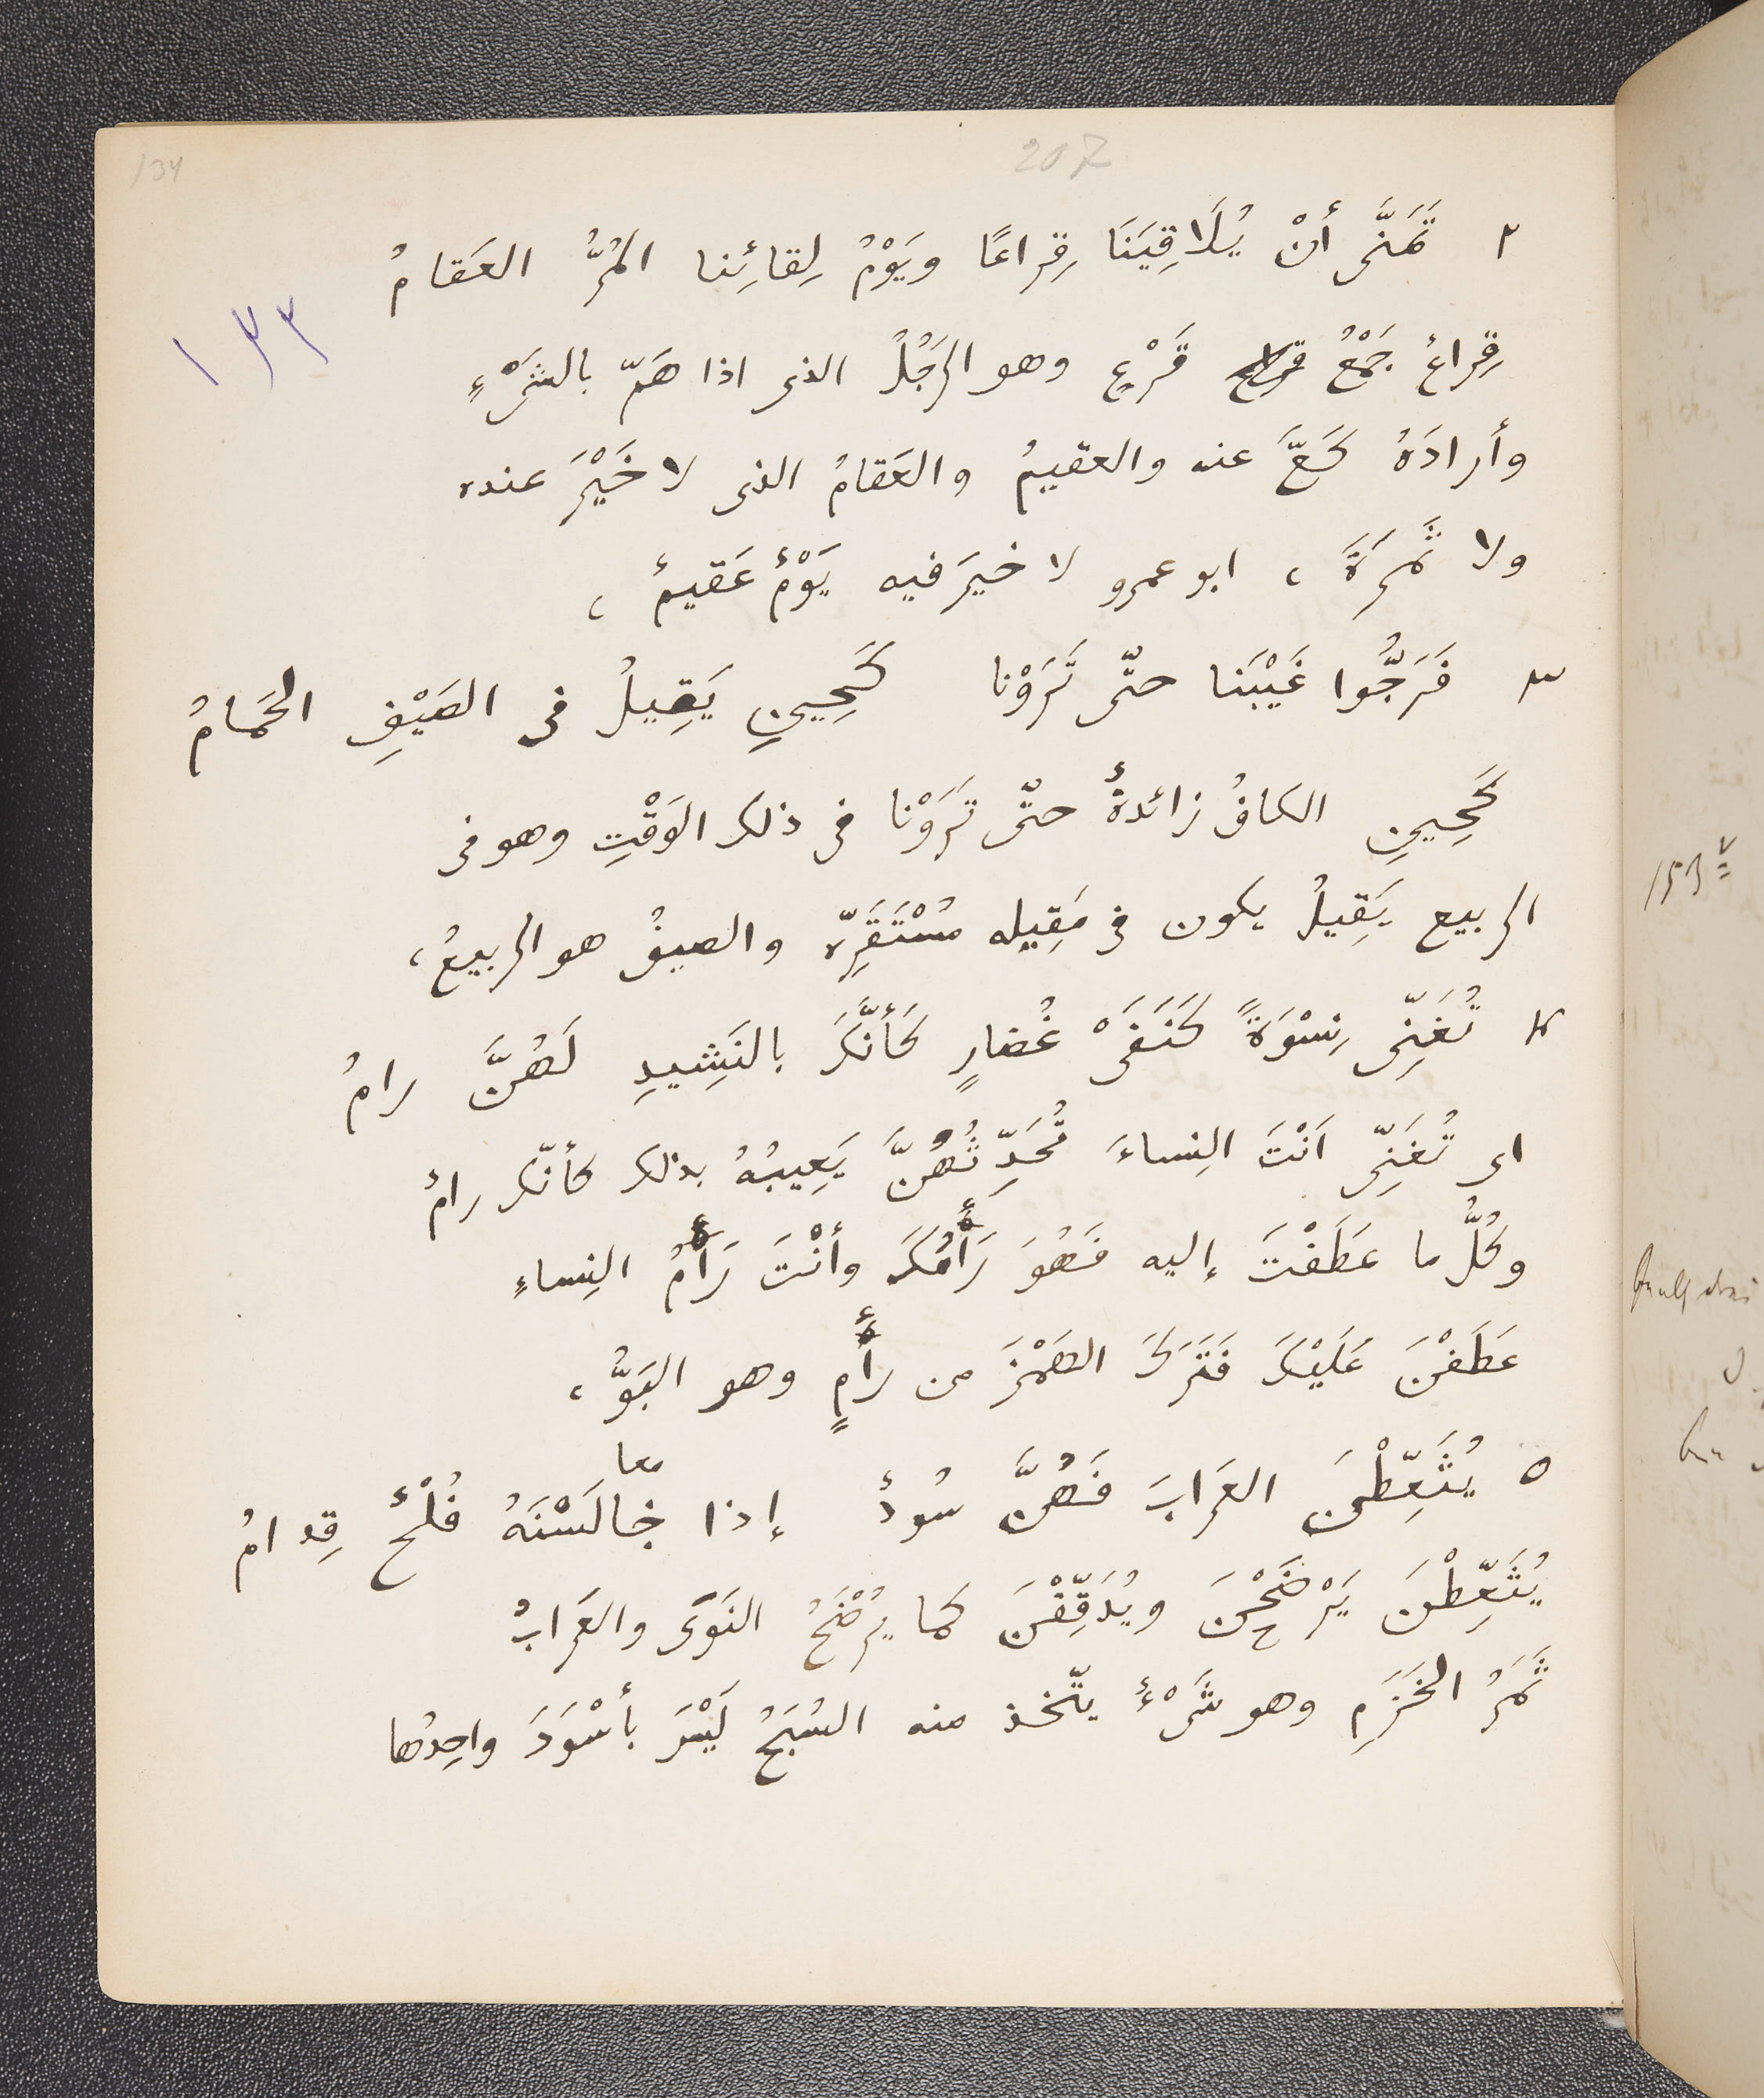 134
207
١٣٣
٢ تَمَنَّى أنْ يُلَاقِيَنَا قِراعًا ويَوْمُ لِقائِنا المُرُّ العَقامُ
قِراعٌ جَمْعُ قَرْعٍ وهو الرَجُلُ الذى اذا هَمّ بالشَىْءِ
وأرادَهُ كَعَّ عنه والعقيمُ والعَقامُ الذى لا خَيْرَ عنده
ولا ثَمَرَةَ ، ابو عمرو لا خيرَ فيه يَوْمٌ عَقيمٌ ،
٣ فَرَجُّوا غَيْبَنا حتّى تَرَوْنا كَحِينِ يَقِيلُ فى الصَيْفِ الحَمامُ
كَحِينِ الكافُ زائدةٌ حتّى تَرَوْنا فى ذلك الوَقْتِ وهو فى
الربيع يَقِيلُ يكون فى مَقِيلِه مُسْتَقَرِّه والصيفُ هو الربيعُ ،
٤ تُغَنِّى نِسْوَةً كَنَفَىْ غُضارٍ كَأنَّكَ بالنَشِيدِ لَهُنَّ رامُ
اى تُغَنِّى اَنْتَ النِساءَ تُحَدِّثُهُنَّ يَعِيبُهُ بذلك كأنّك رامٌ
وكُلُّ ما عَطَفْتَ إليه فَهُوَ رَأْمُكَ وأنْتَ رَأْمُ النِساءِ
عَطَفْنَ عَلَيْكَ فَتَرَكَ الهَمْزَ من رأْمٍ وهو البَوُّ ،
معا
٥ يُثَعِّطْنَ العَرابَ فَهُنَّ سُودٌ إذا خالَسْنَهُ فُلْحٌ قِدامُ
يُثَعِّطْنَ يَرْضَحْنَ ويُدَقِّقْنَ كما يُرْضَحُ النَوَى والعَرابُ
ثَمَرُ الخَزَمِ وهو شَىْءٌ يتّخذ منه السُبَحُ لَيْسَ بأسْوَدَ واحِدتُها